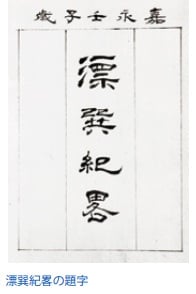 嘉永壬子歳
漂巽紀畧
漂巽紀畧の題字